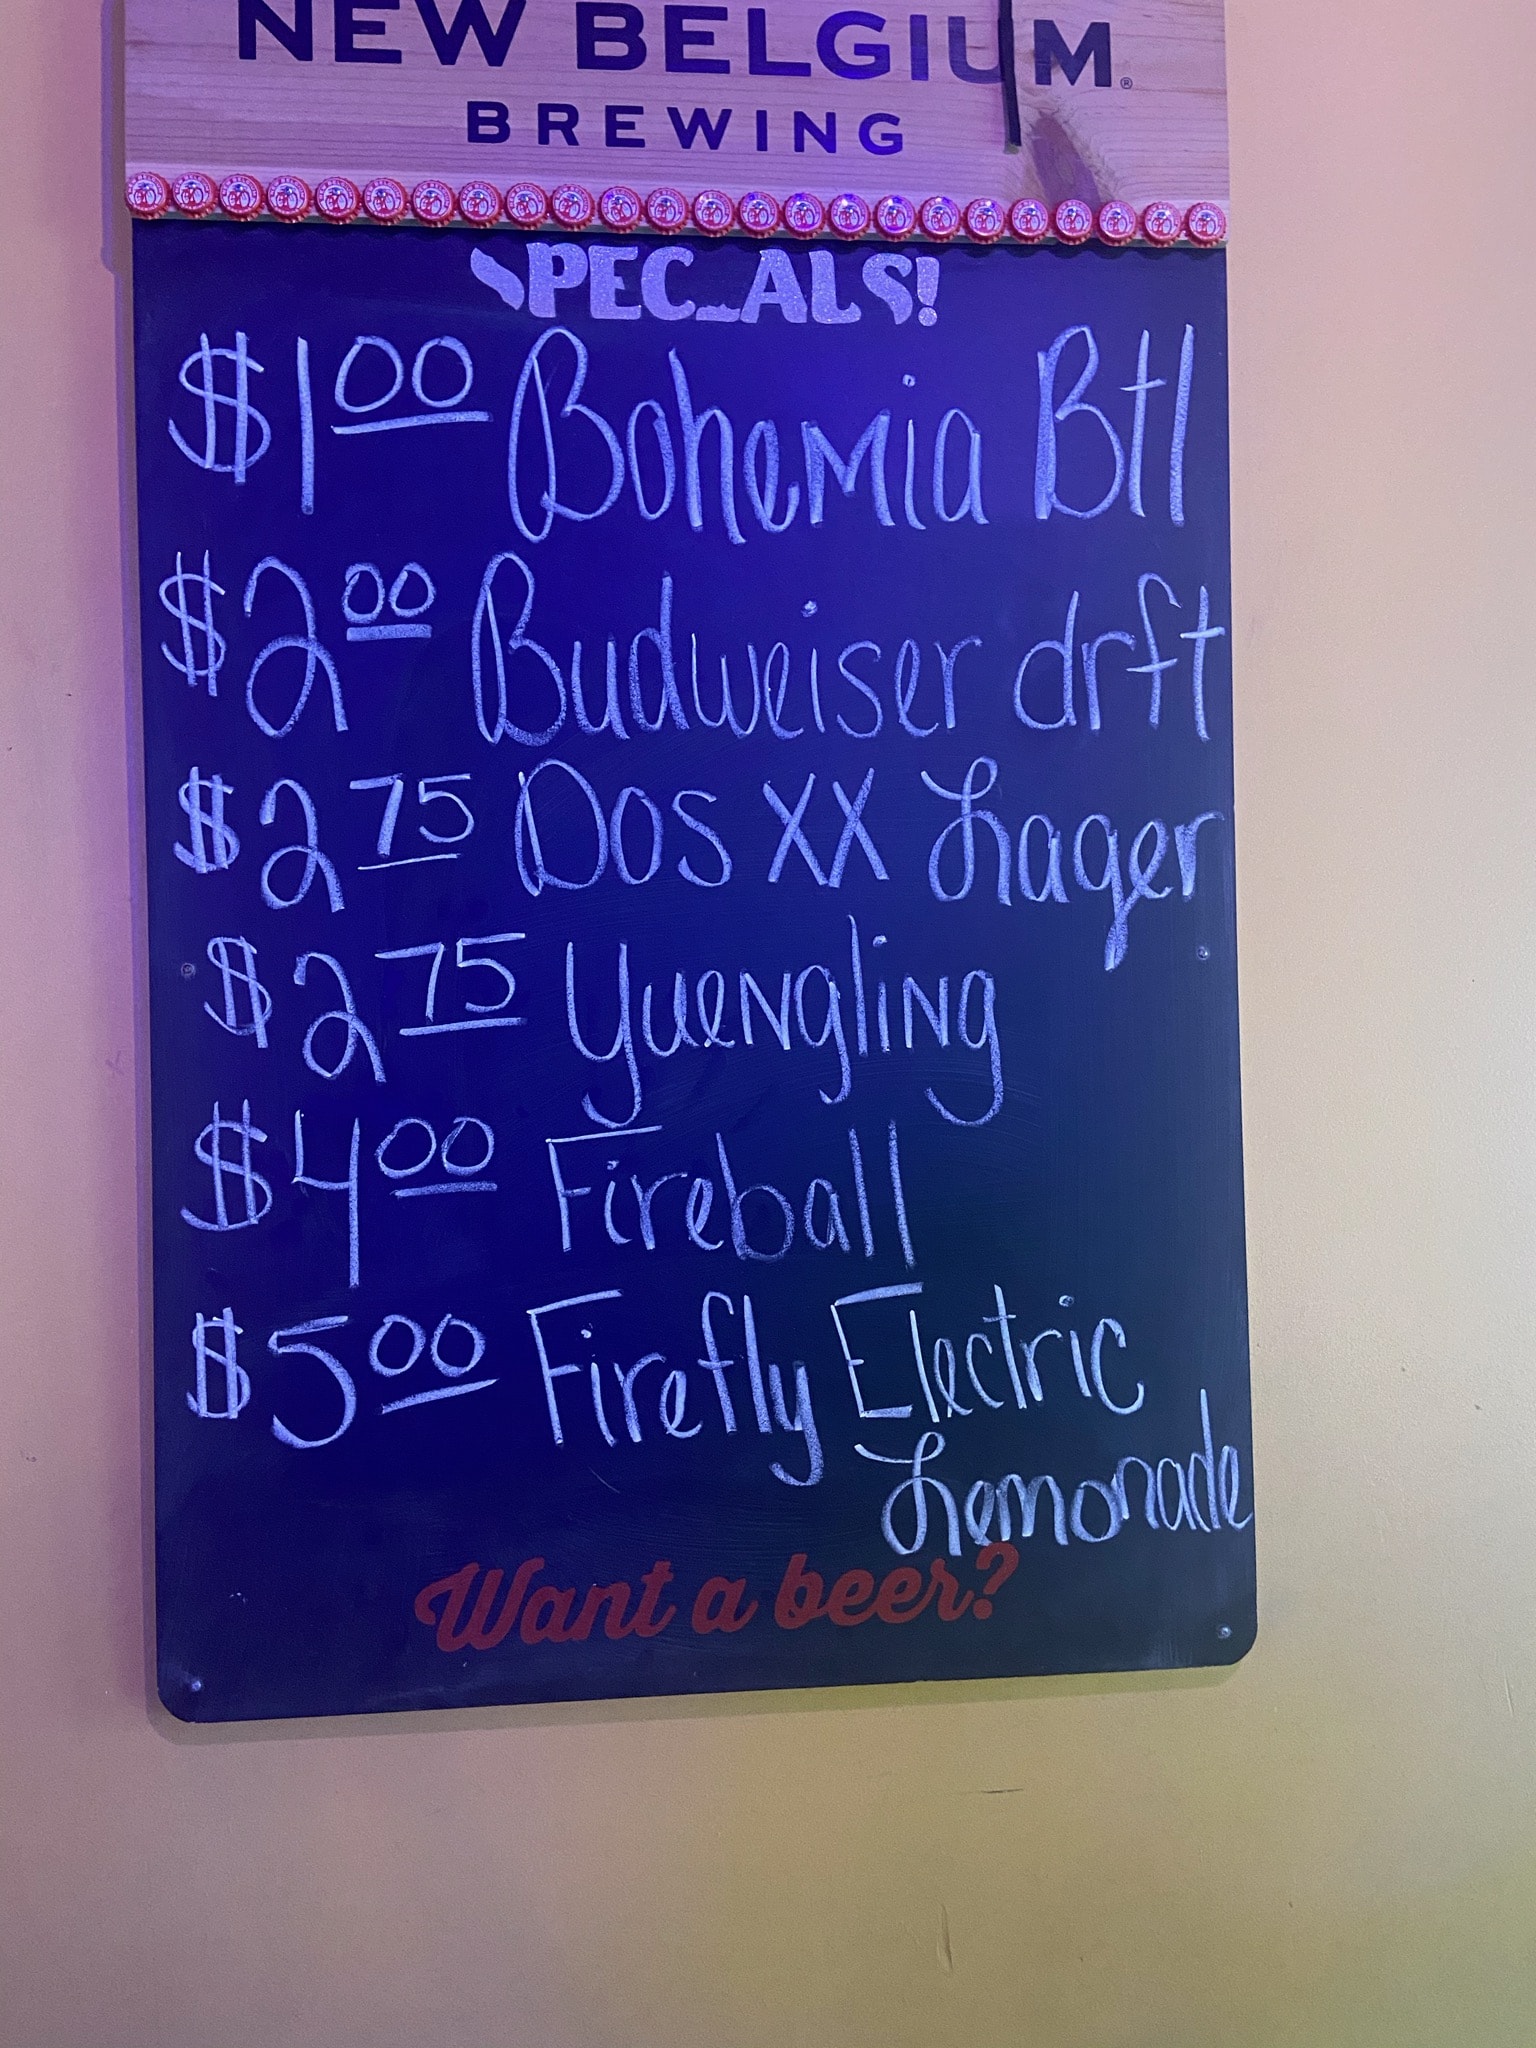 NEW BELGIUM®
BREWING
SPEC_ALS!
$1.00 Bohemia Btl
$2.00 Budweiser drft
$2.75 Dos XX Lager
$2.75 Yuengling
$4.00 Fireball
$5.00 Firefly Electric
Lemonade
Want a beer?